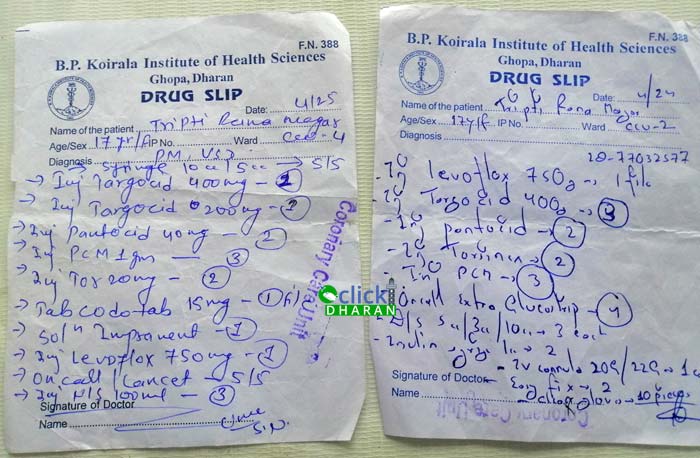 F.N. 388
B.P. Koirala Institute of Health Sciences
Ghopa, Dharan
DRUG SLIP
Date: 4/25
Name of the patient Tripti Rana Magar
Age/Sex 17 yr/f IP No. Ward CCU-4
Diagnosis
→ Syringe 10cc/5cc → 5/5
→ Inj Targocid 400mg - 2
→ Inj Targocid 200mg - 1
→ Inj Pantocid 40mg - 2
→ Inj PCM 1gm - 3
→ Inj Tor 20mg - 2
→ Tab codotab 15mg - 1
→ Inj Levoflox 750mg - 1
→ On call / Lancet - 5/5
→ Inj N/S 100ml - 3
Signature of Doctor
Name
Coronary Care Unit
click
DHARAN
F.N. 388
B.P. Koirala Institute of Health Sciences
Ghopa, Dharan
DRUG SLIP
Date: 4/24
Name of the patient Tripti Rana Magar
Age/Sex 17yr/f IP No. Ward CCU-2
Diagnosis
- Inj levoflox 750g →
- Inj Targocid 400g → 3
- Inj pantocid - 2
- Inj → 2
- Inj PCM → 3
- Oncall Extra Glucostrip - 4
- D/s 5cc/3cc/10cc → 3 each
- Insulin → 2
- IV cannula 20G/22G →
- Easy fix → 2
10 pieces
Signature of Doctor
Name
Coronary Care Unit